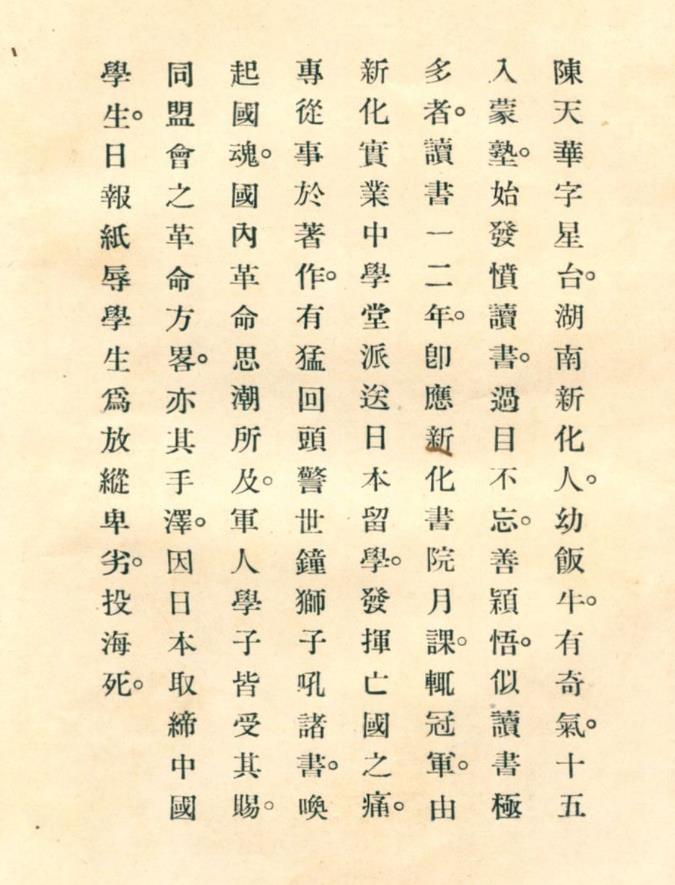 陳天華字星台。湖南新化人。幼飯牛。有奇氣。十五
入蒙塾。始發憤讀書。過目不忘。善穎悟。似讀書極
多者。讀書一二年。卽應新化書院月課。輒冠軍。由
新化實業中學堂派送日本留學。發揮亡國之痛。
專從事於著作。有猛回頭警世鐘獅子吼諸書。喚
起國魂。國內革命思潮所及。軍人學子皆受其賜。
同盟會之革命方畧。亦其手澤。因日本取締中國
學生。日報紙辱學生爲放縱卑劣。投海死。